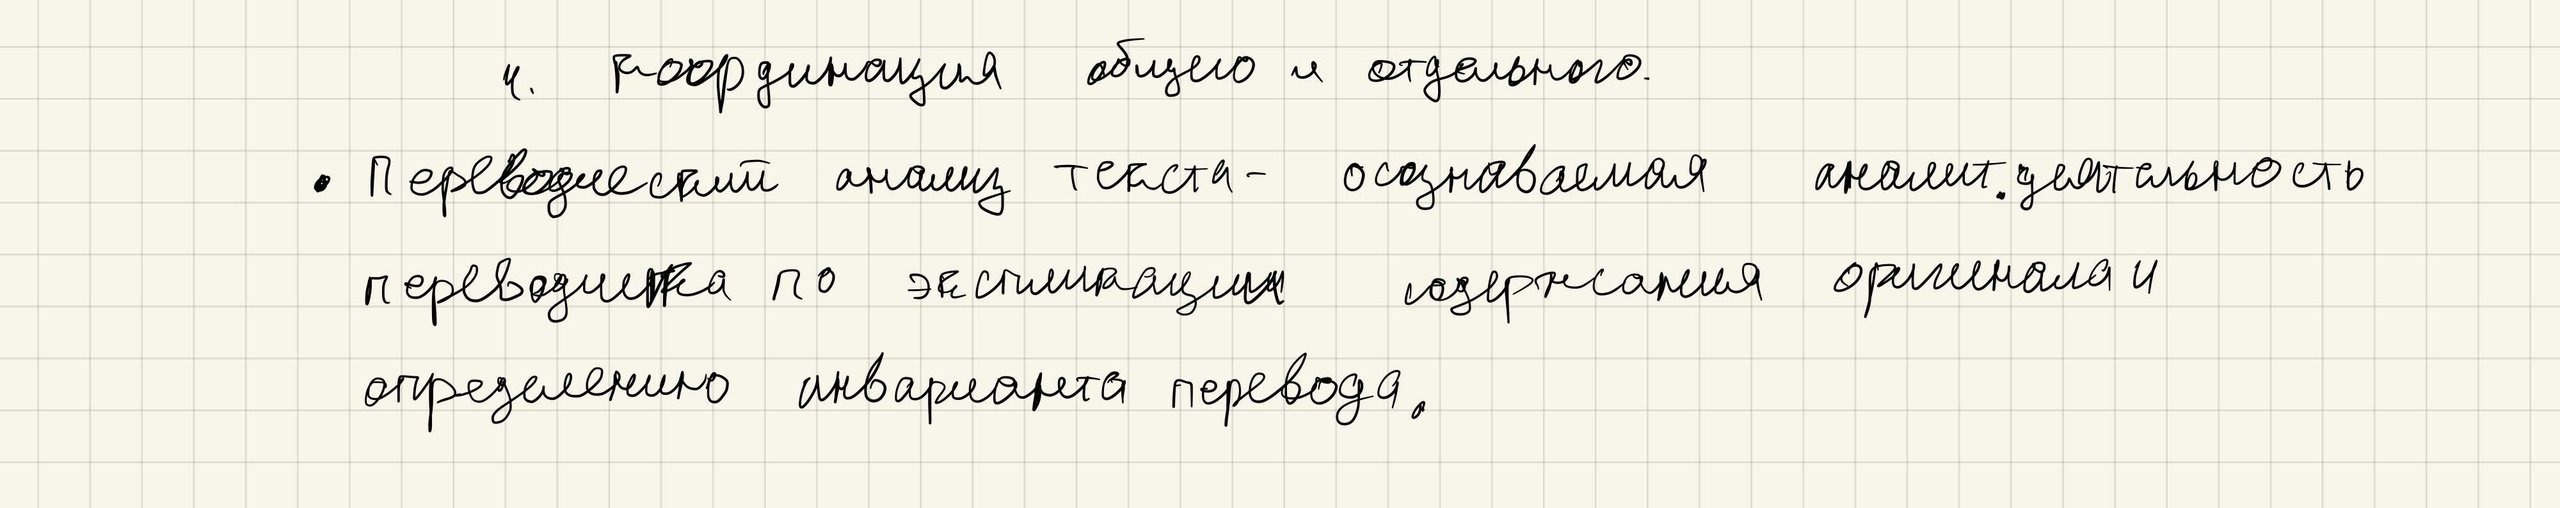 4. Координация общего и отдельного.
• Переводческий анализ текста - осознаваемая аналит. деятельность
переводчика по экспликации содержания оригинала и
определению инварианта перевода.